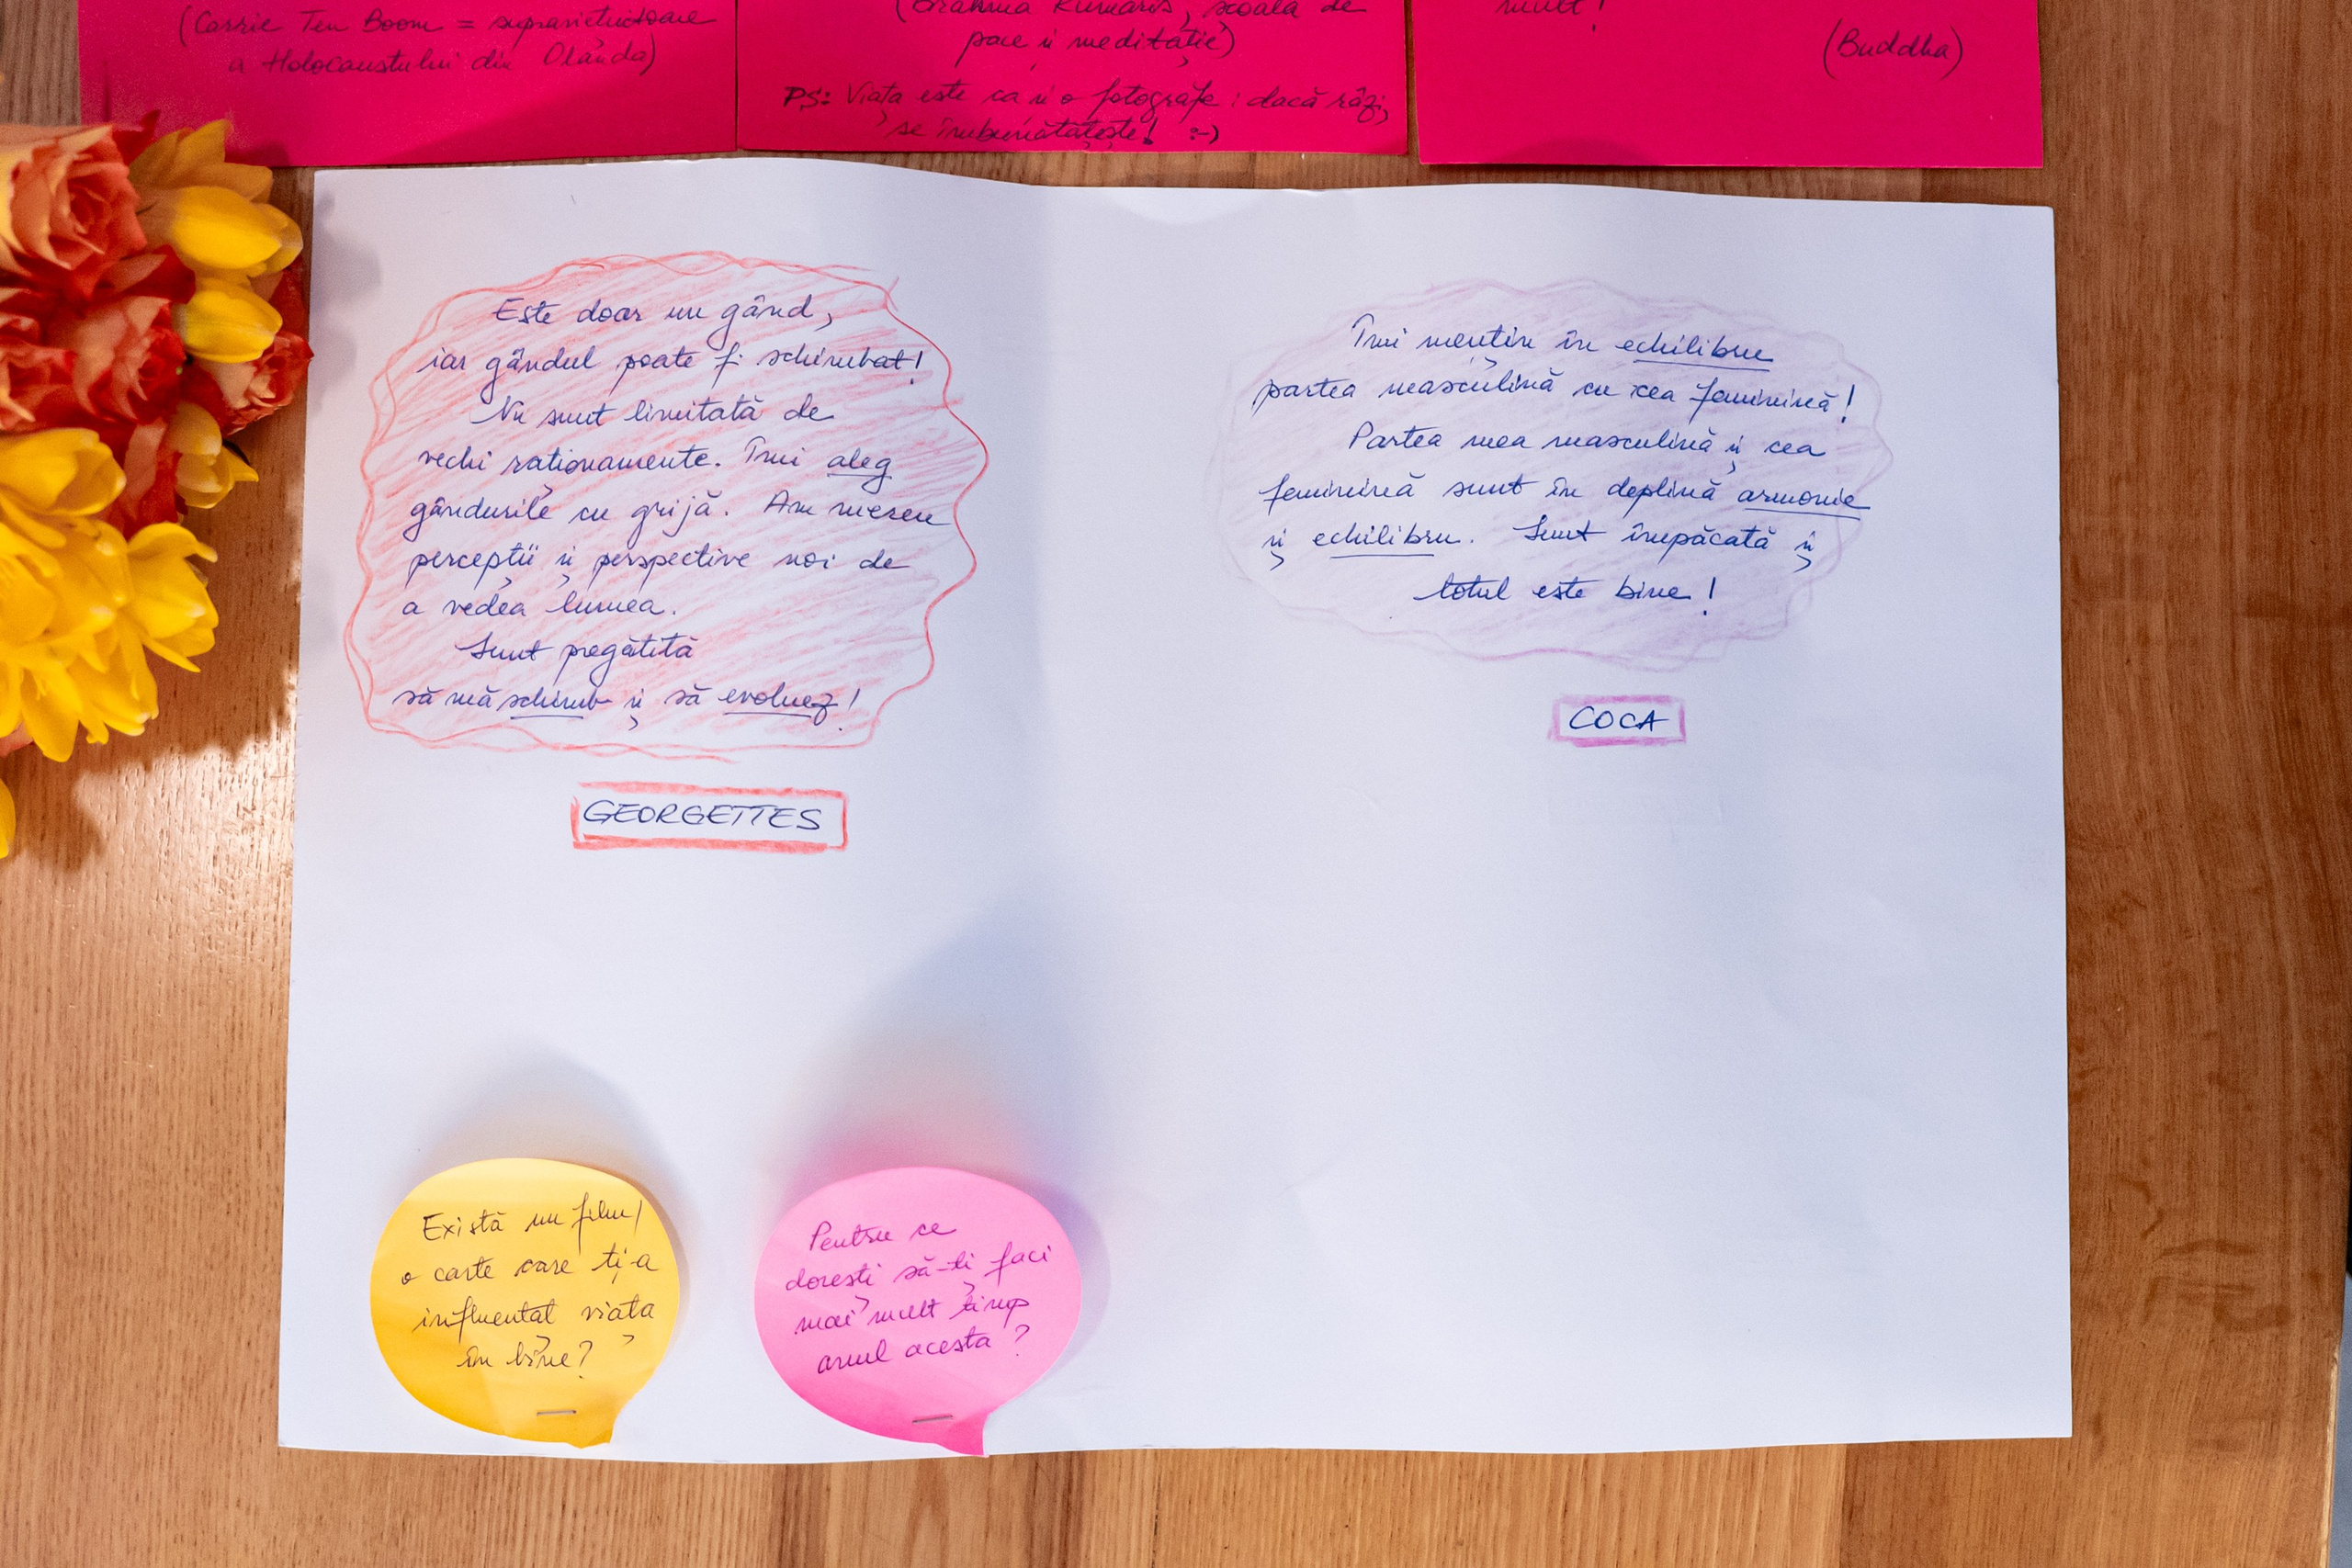 (Carrie Ten Boom = supraviețuitoare
a Holocaustului din Olanda)
(Brahma Kumaris, școala de
pace și meditație)
PS: Viața este ca și o fotografie: dacă râzi,
se îmbunătățește! :-)
mult!
(Buddha)
Este doar un gând,
iar gândul poate fi schimbat!
Nu sunt limitată de
vechi raționamente. Îmi aleg
gândurile cu grijă. Am mereu
percepții și perspective noi de
a vedea lumea.
Sunt pregătită
să mă schimb și să evoluez!
GEORGETTES
Îmi mențin în echilibru
partea masculină cu cea feminină!
Partea mea masculină și cea
feminină sunt în deplină armonie
și echilibru. Sunt împăcată și
totul este bine!
COCA
Există un film/
o carte care ți-a
influențat viața
în bine?
Pentru ce
dorești să-ți faci
mai mult timp
anul acesta?